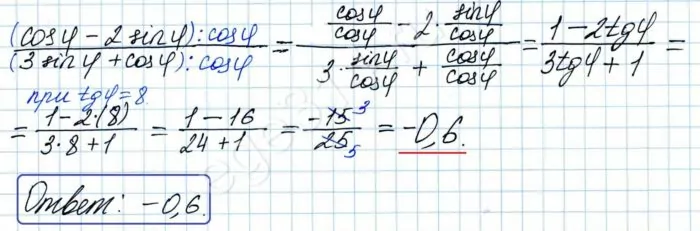 (cosφ − 2 sinφ) : cosφ / (3 sinφ + cosφ) : cosφ = (cosφ/cosφ − 2 · sinφ/cosφ) / (3 · sinφ/cosφ + cosφ/cosφ) = (1 − 2tgφ) / (3tgφ + 1) =
при tgφ = 8
= (1 − 2·(8)) / (3·8 + 1) = (1 − 16) / (24 + 1) = −15 3 / 25 5 = −0,6.
Ответ: −0,6.